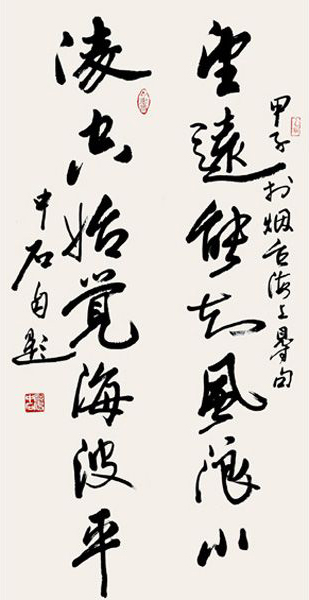 甲子於烟台海上㝵句
望遠能知風浪小
淩空始覺海波平
中石自題